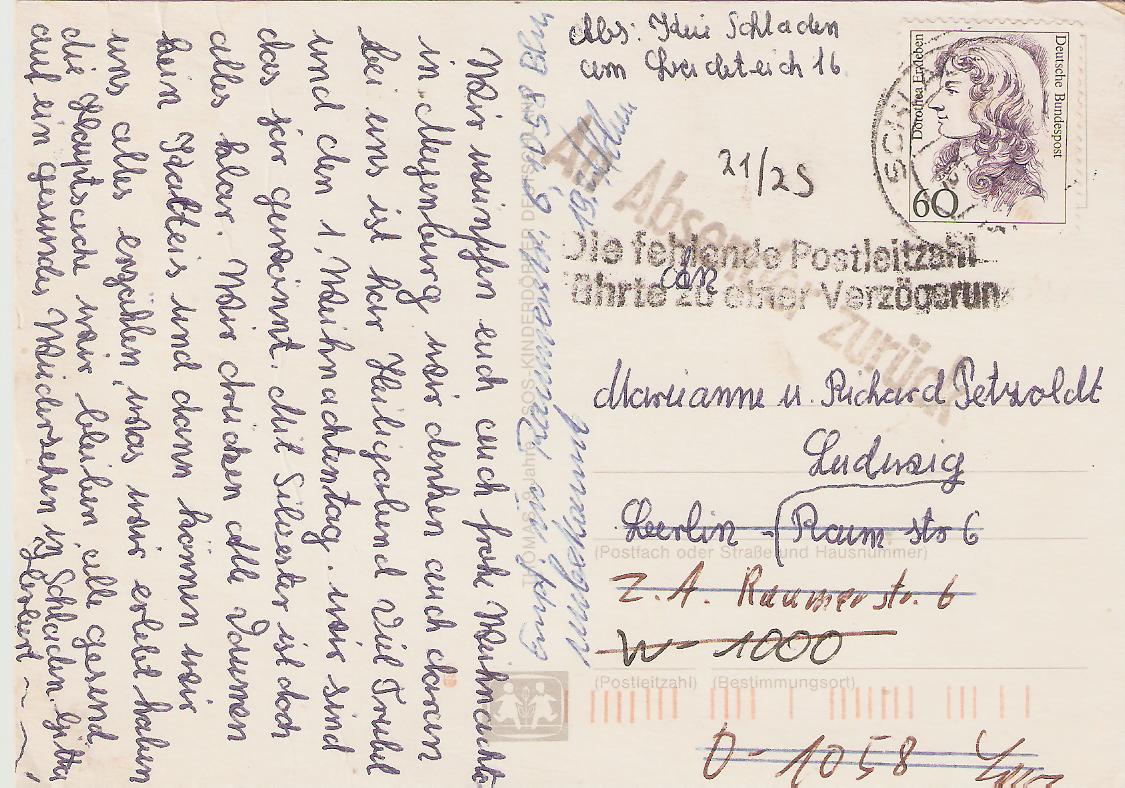 Wir wünschen euch auch frohe Weihnachts
in Meyenburg wir denken auch daran
bei uns ist kar Heiligabend Viel Trubel
und den 1. Weihnachtentag. wir sind
das jar gewoint. Mit Silvester ist doch
alles klar. Wir drücken alle Daumen
kein Glatteis und dann können wir
uns alles erzählen, was wir erlebt haben
die Hauptsache wir bleiben alle gesund
auf ein gesundes Wiedersehen in Schladen. bitte
Abs: Schladen
am 16
Deutsche Bundespost
Dorothea Erxleben
60
21/25
An Absender zurück
Die fehlende Postleitzahl
führte zu einer Verzögerung
an
Marianne u. Richard Petzoldt
Ludwig
Berlin - Raum str 6
(Postfach oder Straße und Hausnummer)
Z.A. Raumer str. 6
W - 1000
(Postleitzahl) (Bestimmungsort)
O - 1058
SOS-KINDERDÖRFER